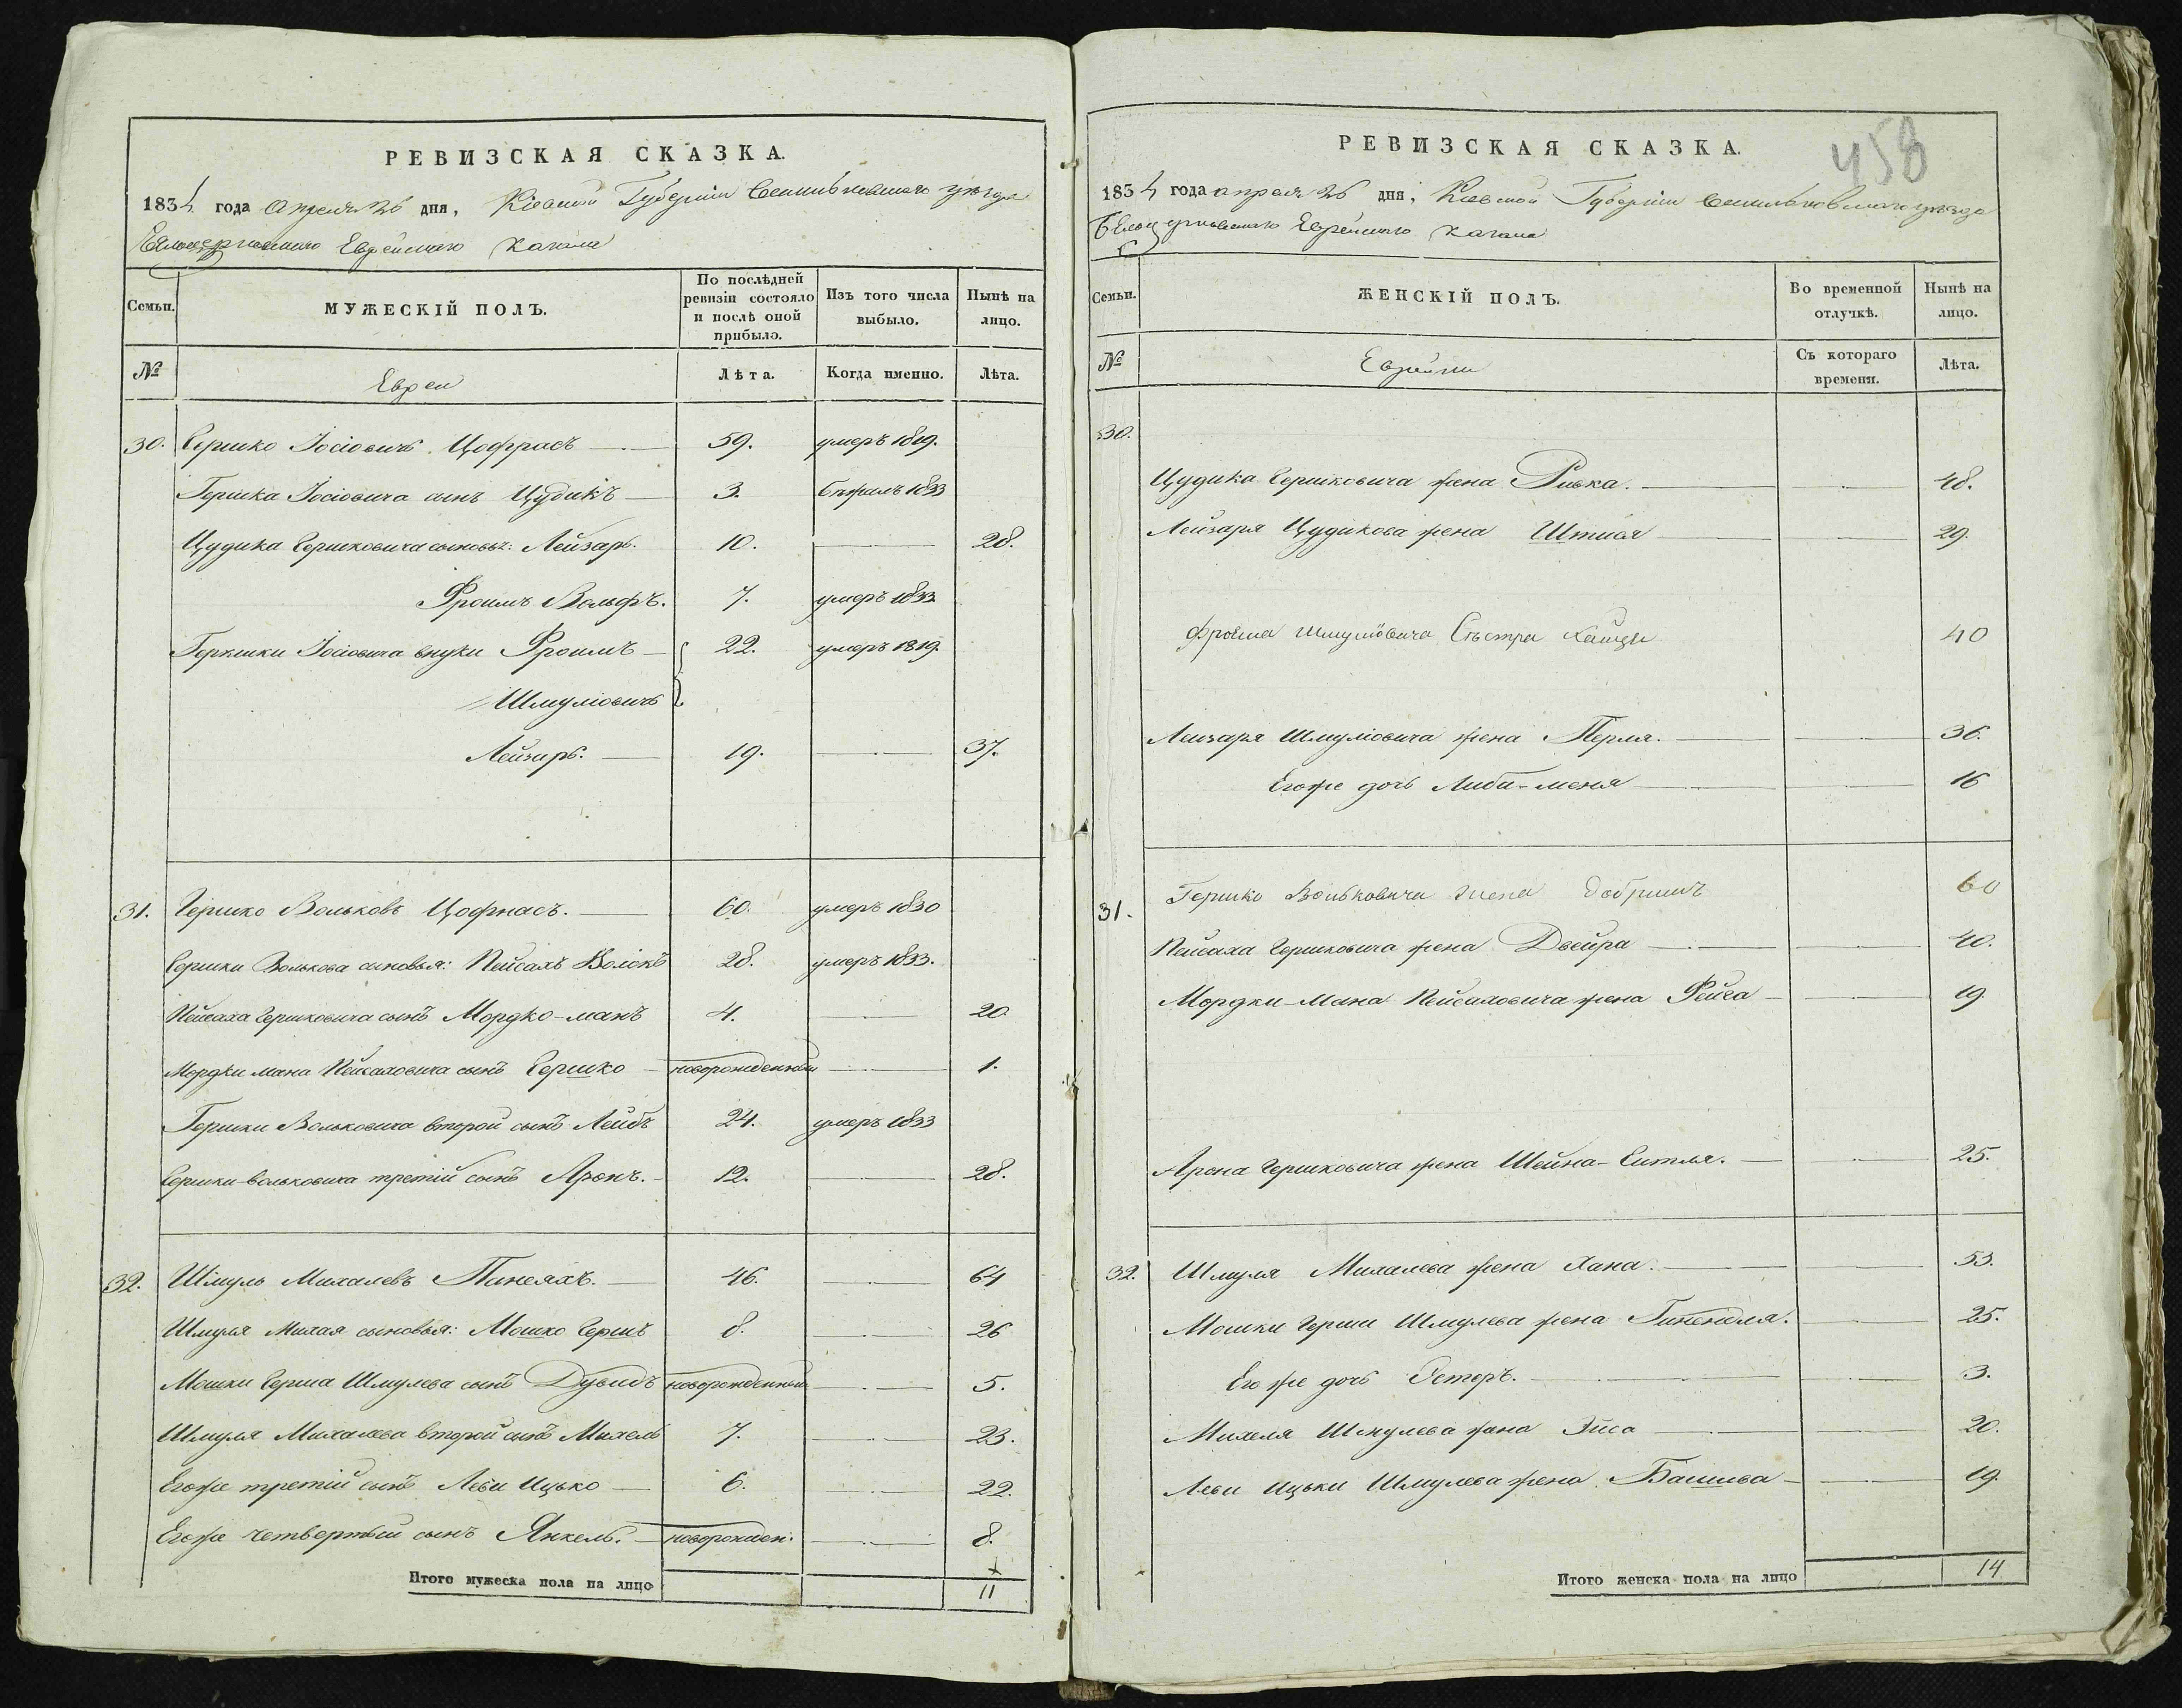 РЕВИЗСКАЯ СКАЗКА.
1834 года апреля 26 дня, Кіевской Губерніи Васильковскаго уѣзда
Бѣлоцерковскаго Еврейскаго Кагала
Семьи.
МУЖЕСКІЙ ПОЛЪ.
По послѣдней ревизіи состояло и послѣ оной прибыло.
Изъ того числа выбыло.
Нынѣ на лицо.
№
Евреи
Лѣта.
Когда именно.
Лѣта.
30. Гершко Іосіовичъ Цофнасъ 59. умеръ 1819.
Гершка Іосіовича сынъ Цудикъ 3. бѣжалъ 1833
Цудика Гершковича сыновья: Лейзаръ. 10. 28.
Фроимъ Вольфъ. 7. умеръ 1833
Гершки Іосіовича внуки Фроимъ 22. умеръ 1819.
Шмуліовичъ
Лейзаръ. 19. 37.
31. Гершко Вольковъ Цофнасъ. 60. умеръ 1830
Гершки Волькова сыновья: Пейсахъ Волокъ 28. умеръ 1833.
Пейсаха Гершковича сынъ Мордко-манъ 4. 20
Мордки мана Пейсаховича сынъ Гершко новорожденный 1.
Гершки Вольковича второй сынъ Лейбъ 24. умеръ 1833
Гершки Вольковича третій сынъ Аронъ. 12. 28.
32. Шмуль Михалевъ Пинеяхъ. 46. 64
Шмуля Михая сыновья: Мошко Гершъ 8. 26
Мошки Герша Шмулева сынъ Дувидъ новорожденный 5.
Шмуля Михалева второй сынъ Михель 7. 23.
Его же третій сынъ Леви Ицько 6. 22.
Его же четвертый сынъ Янкель. новорожден. 8.
Итого мужеска пола на лицо 11
458
РЕВИЗСКАЯ СКАЗКА.
1834 года апреля 26 дня, Кіевской Губерніи Васильковскаго уѣзда
Бѣлоцерковскаго Еврейскаго Кагала
Семьи.
ЖЕНСКІЙ ПОЛЪ.
Во временной отлучкѣ.
Нынѣ на лицо.
№
Еврейки
Съ котораго времени.
Лѣта.
30.
Цудика Гершковича жена Ривка. 48.
Лейзаря Цудикова жена 29.
Фроима Шмуліовича Сѣстра 40
Лейзаря Шмуліовича жена Перля. 36.
Его же дочь Либа-меня 16
31. Гершко Вольковича жена Добришъ 60
Пейсаха Гершковича жена Двейра 40.
Мордки-Мана Пейсаховича жена Фейга 19
Арона Гершковича жена Шейна-Ситля. 25.
32. Шмуля Михалева жена Хана. 53.
Мошки Герши Шмулева жена Гинендля. 25.
Его же дочь Эстеръ. 3.
Михеля Шмулева жена Эйга 20.
Леви Ицьки Шмулева жена Башива 19.
Итого женска пола на лицо 14